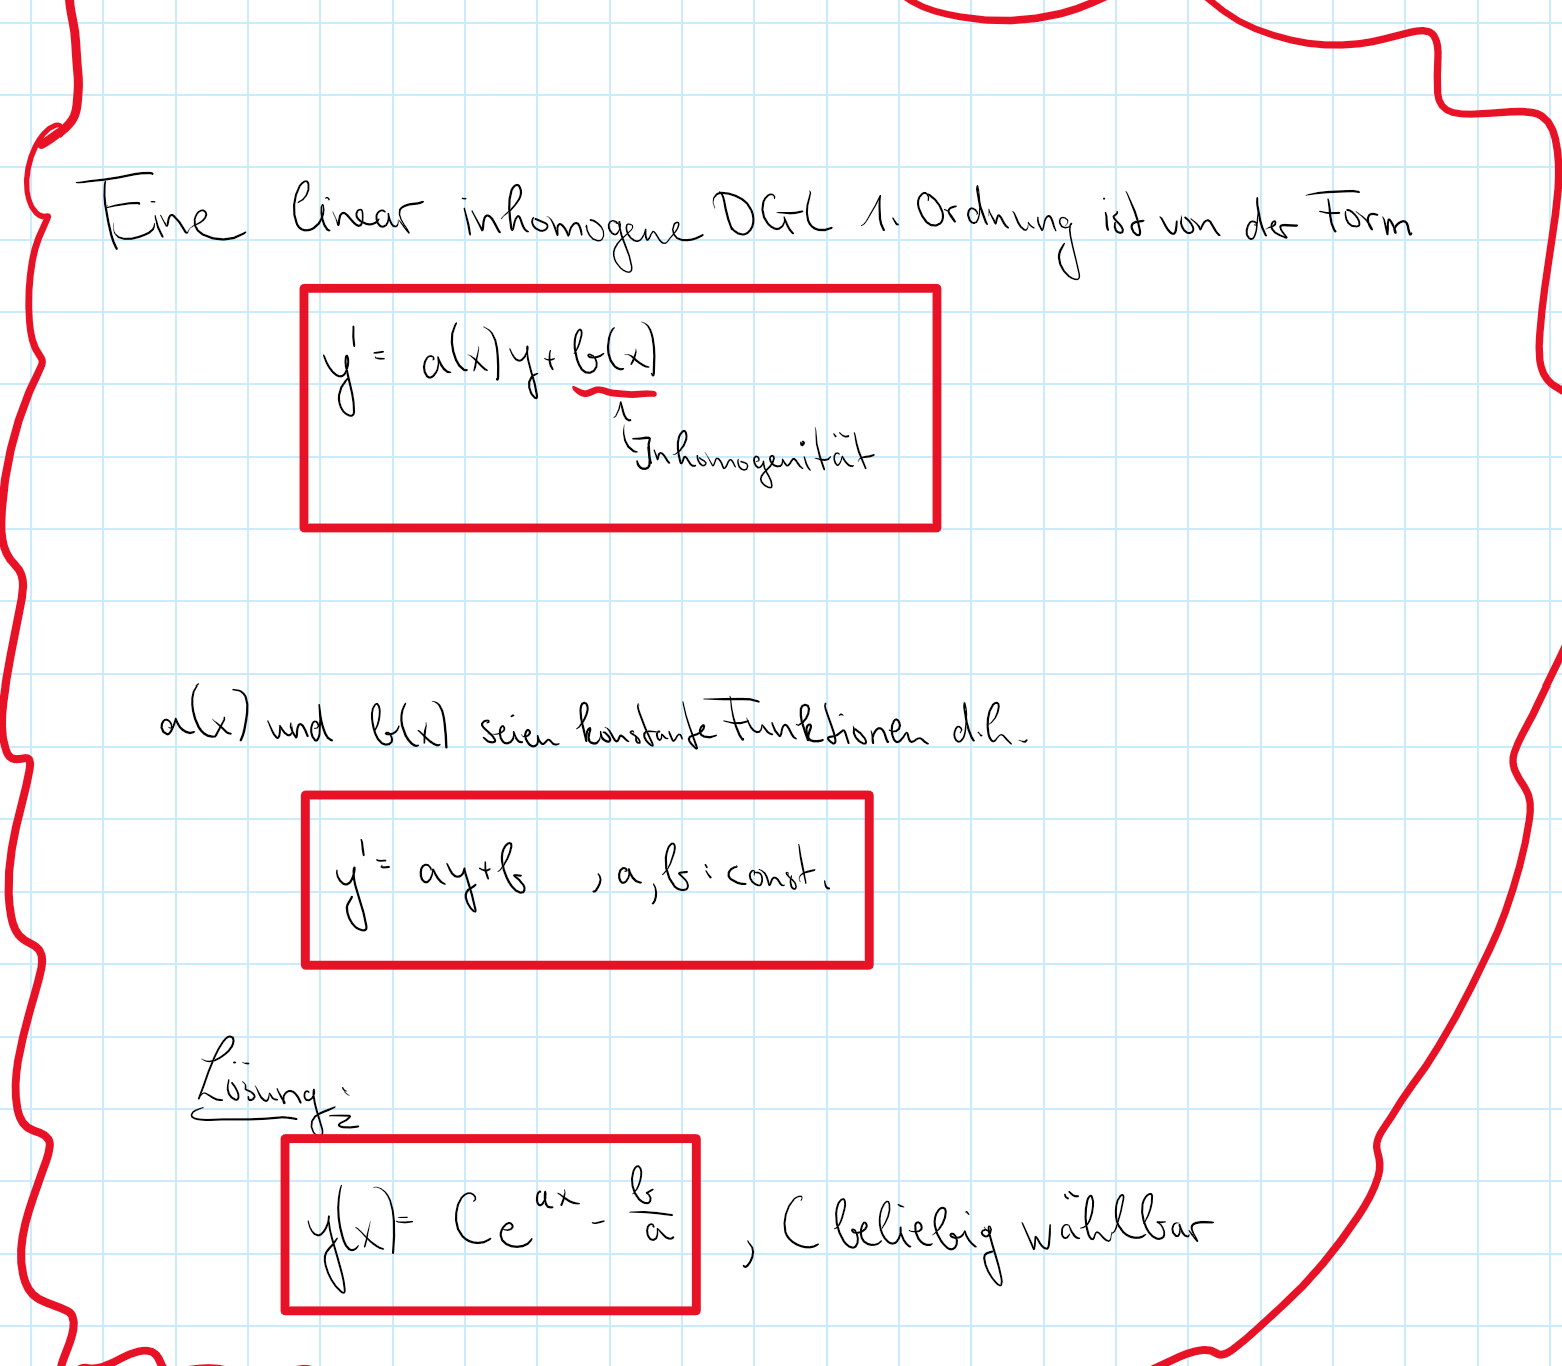 Eine linear inhomogene DGL 1. Ordnung ist von der Form
y' = a(x)y + b(x)
Inhomogenität
a(x) und b(x) seien konstante Funktionen d.h.
y' = ay+b , a,b : const.
Lösung:
y(x) = Ce^{ax} - \frac{b}{a} , C beliebig wählbar